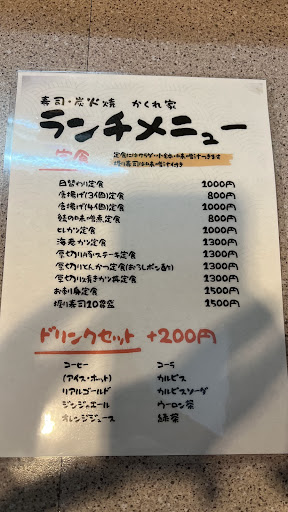 寿司・炭火焼 かくれ家
ランチメニュー
定食
定食にはサラダ・小鉢・味噌汁つきます
握り寿司は味噌汁付き
日替わり定食 1000円
唐揚げ(3個)定食 800円
唐揚げ(4個)定食 1000円
鯖の味噌煮定食 800円
ヒレカツ定食 1000円
海老カツ定食 1300円
厚切り豚ステーキ定食 1300円
厚切りとんかつ定食(おろしポン酢) 1300円
厚切り焼きかつ丼定食 1300円
お刺身定食 1500円
握り寿司10貫盛 1500円
ドリンクセット +200円
コーヒー
(アイス・ホット)
リアルゴールド
ジンジャエール
オレンジジュース
コーラ
カルピス
カルピスソーダ
ウーロン茶
緑茶